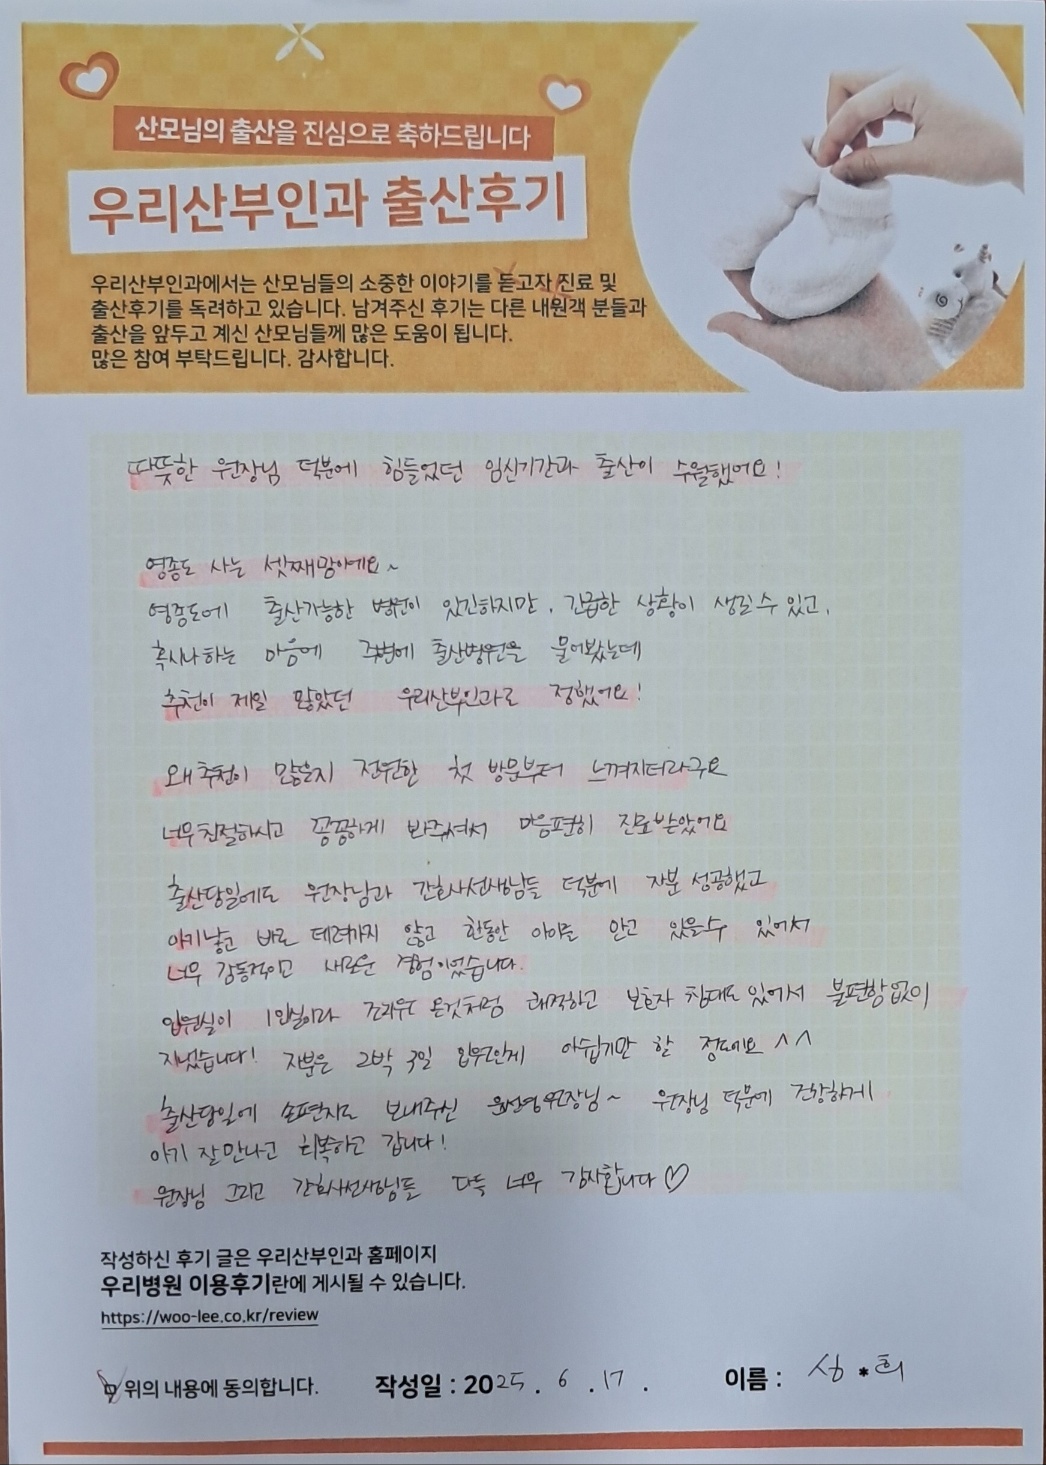 산모님의 출산을 진심으로 축하드립니다
우리산부인과 출산후기
우리산부인과에서는 산모님들의 소중한 이야기를 듣고자 진료 및
출산후기를 독려하고 있습니다. 남겨주신 후기는 다른 내원객 분들과
출산을 앞두고 계신 산모님들께 많은 도움이 됩니다.
많은 참여 부탁드립니다. 감사합니다.
따뜻한 원장님 덕분에 힘들었던 임신기간과 출산이 수월했어요!
영종도 사는 셋째맘이에요~
영종도에 출산가능한 병원이 있긴하지만, 긴급한 상황이 생길수 있고,
혹시나하는 마음에 주변에 출산병원을 물어봤는데
추천이 제일 많았던 우리산부인과로 정했어요!
왜 추천이 많은지 전원한 첫 방문부터 느껴지더라구요
너무 친절하시고 꼼꼼하게 봐주셔서 마음편히 진료받았어요
출산당일에도 원장님과 간호사선생님들 덕분에 자분 성공했고
아기낳고 바로 데려가지 않고 한동안 아이를 안고 있을수 있어서
너무 감동적이고 새로운 경험이었습니다.
입원실이 1인실이라 조리원 온것처럼 쾌적하고 보호자 침대도 있어서 불편함없이
지냈습니다! 자분은 2박 3일 입원인게 아쉽기만 할 정도에요 ^^
출산당일에 손편지도 보내주신 원장님~ 원장님 덕분에 건강하게
아기 잘 만나고 회복하고 갑니다!
원장님 그리고 간호사선생님들 다들 너무 감사합니다♡
작성하신 후기 글은 우리산부인과 홈페이지
우리병원 이용후기란에 게시될 수 있습니다.
https://woo-lee.co.kr/review
위의 내용에 동의합니다. 작성일 : 2025 . 6 . 17 . 이름 : * 희